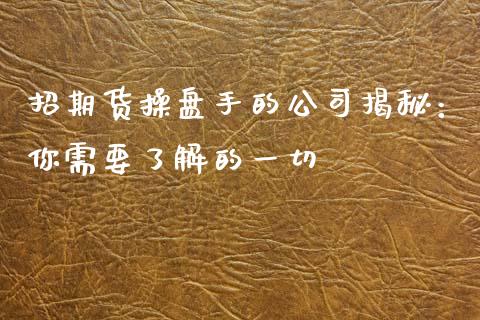 招期货操盘手的公司揭秘：
你需要了解的一切